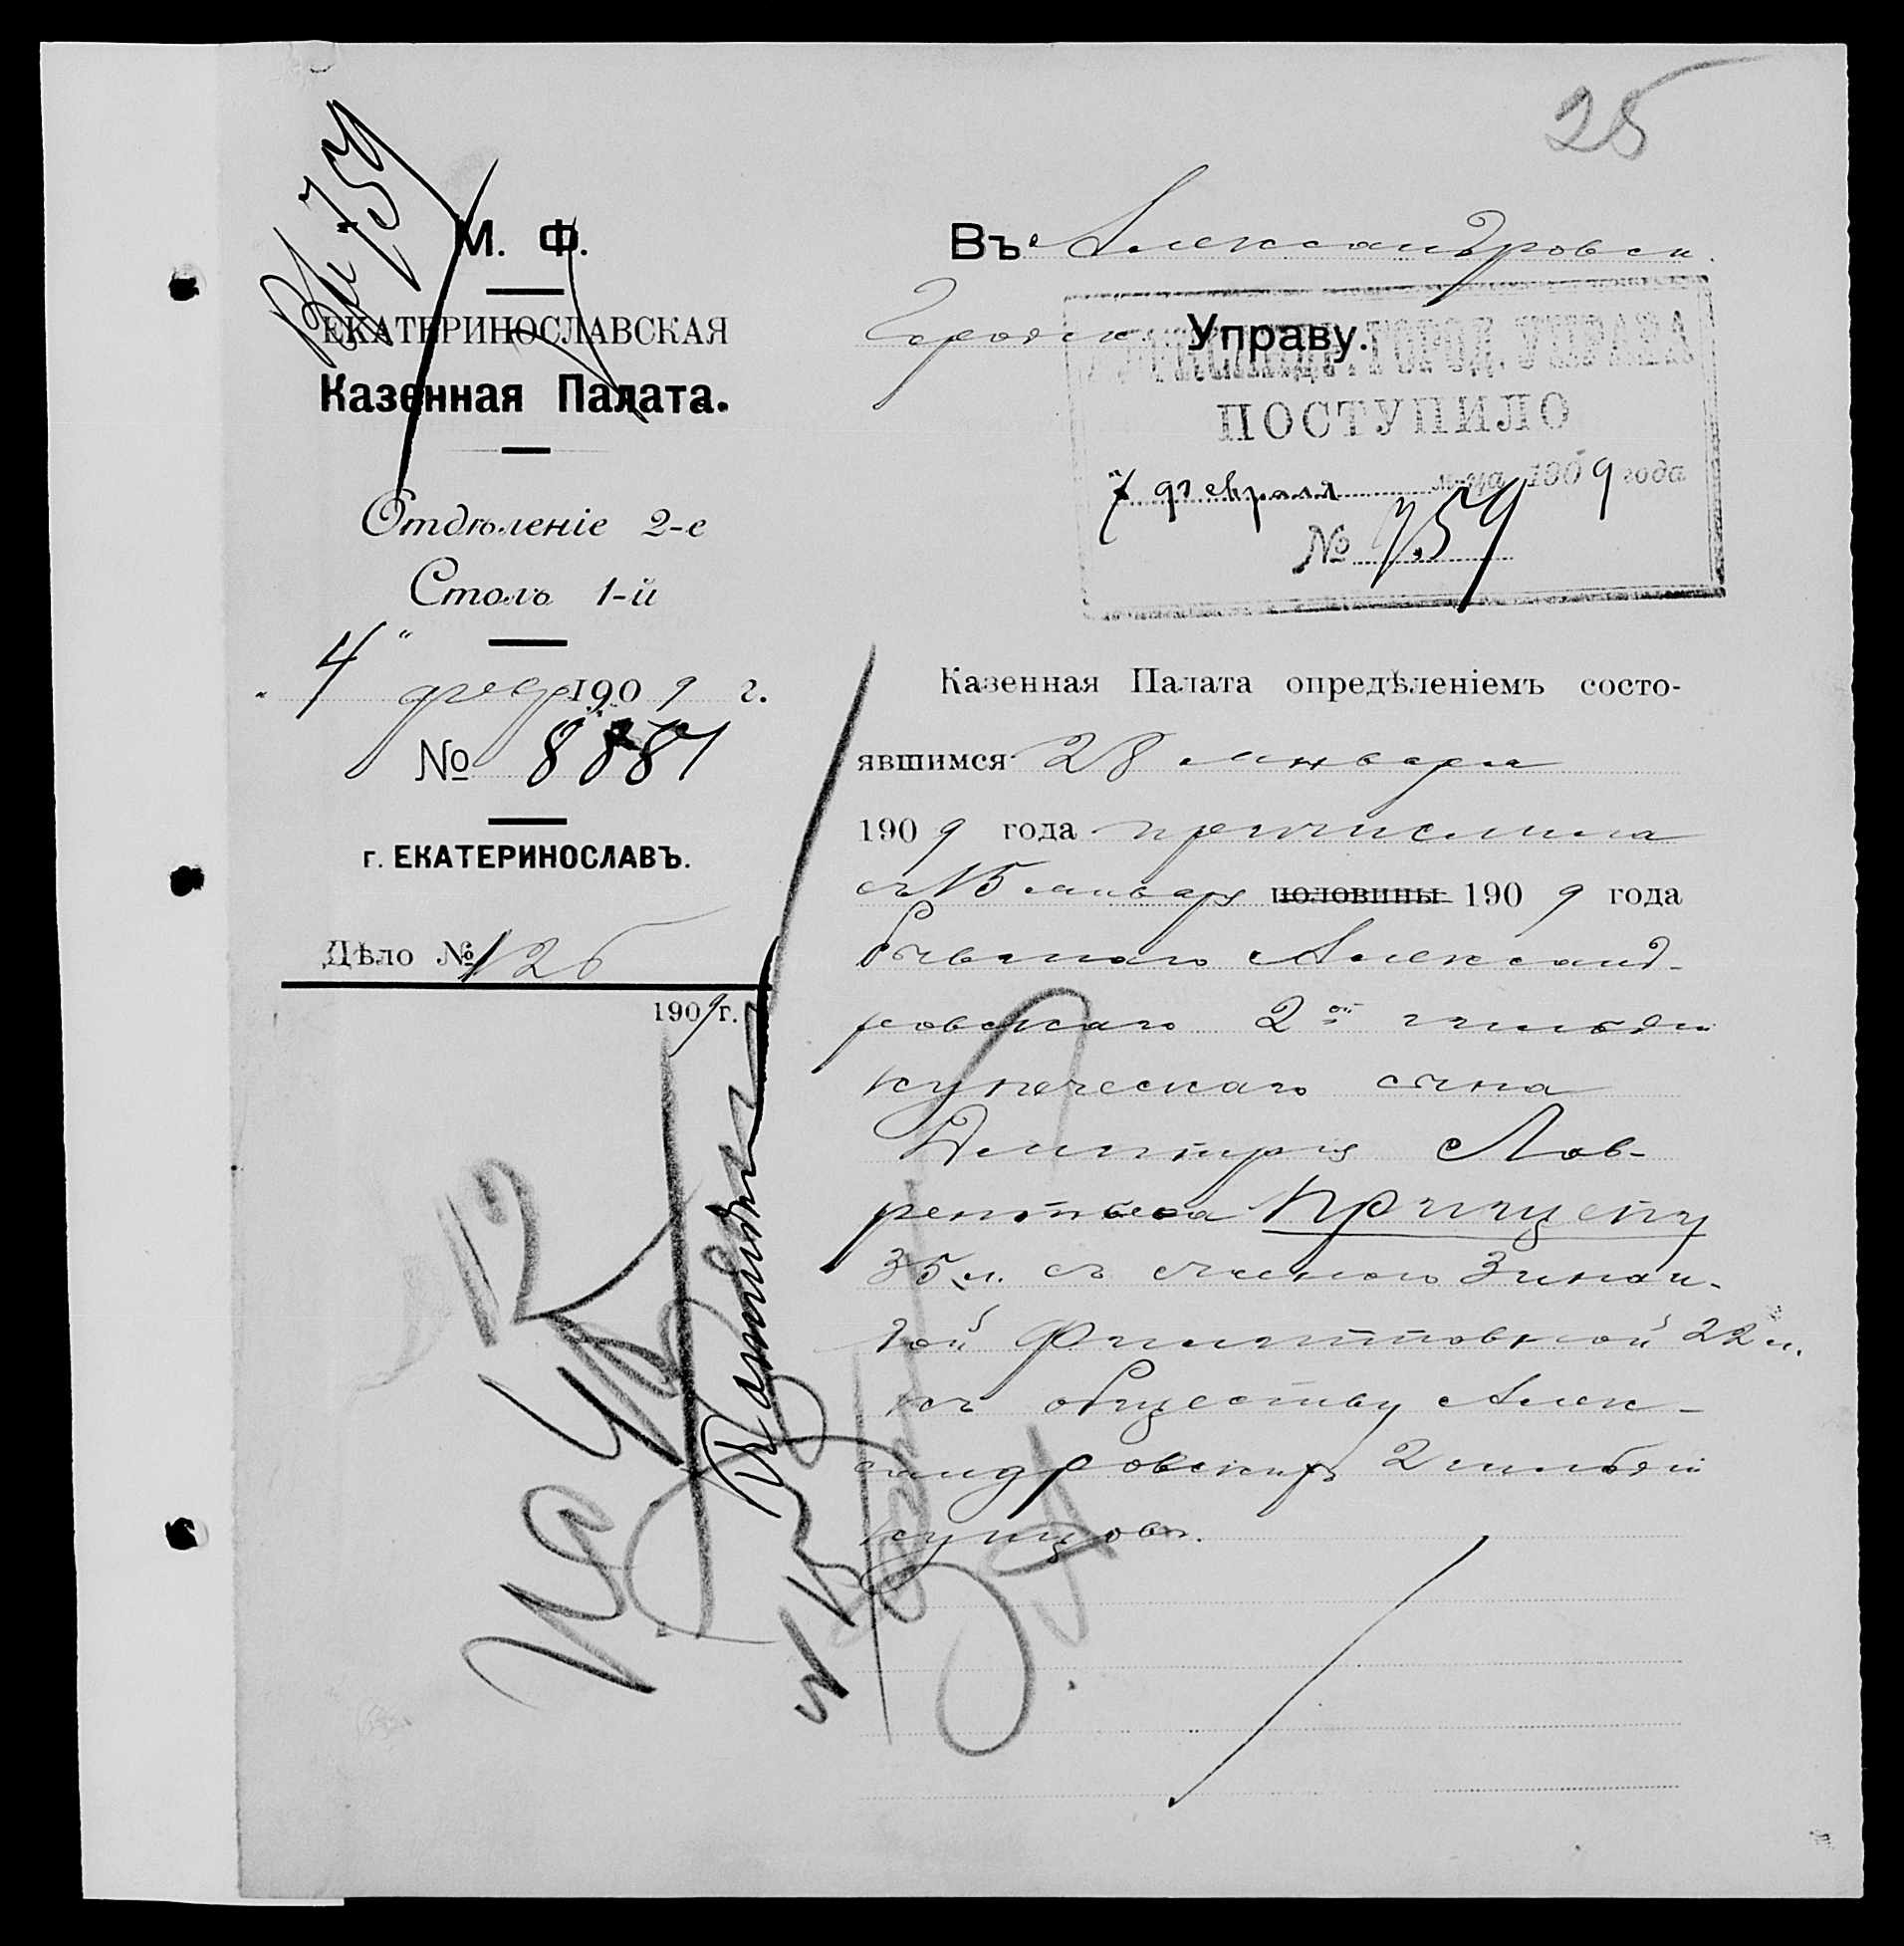 25
Вх 759
М. Ф.
ЕКАТЕРИНОСЛАВСКАЯ
Казенная Палата.
Отдѣленіе 2-е
Столъ 1-й
„ 4 " февр 1909 г.
№ 8887
г. ЕКАТЕРИНОСЛАВЪ.
Дѣло № 125
1909 г.
Въ Александровск.
Городск. Управу.
АЛЕКСАНДР. ГОРОД. УПРАВА
ПОСТУПИЛО
7 февраля м-ца 1909 года
№ 759
Казенная Палата опредѣленіемъ состо-
явшимся 28 января
1909 года причислила
съ 15 января половины 1909 года
бывшаго Александ-
ровскаго 2ой гильдіи
купеческаго сына
Дмитрія Лав-
рентьева Прищепу
35 л. съ женою Зинаи-
дой Филипповной 22 л.
къ обществу Алек-
сандровскихъ 2 гильдіи
купцовъ.